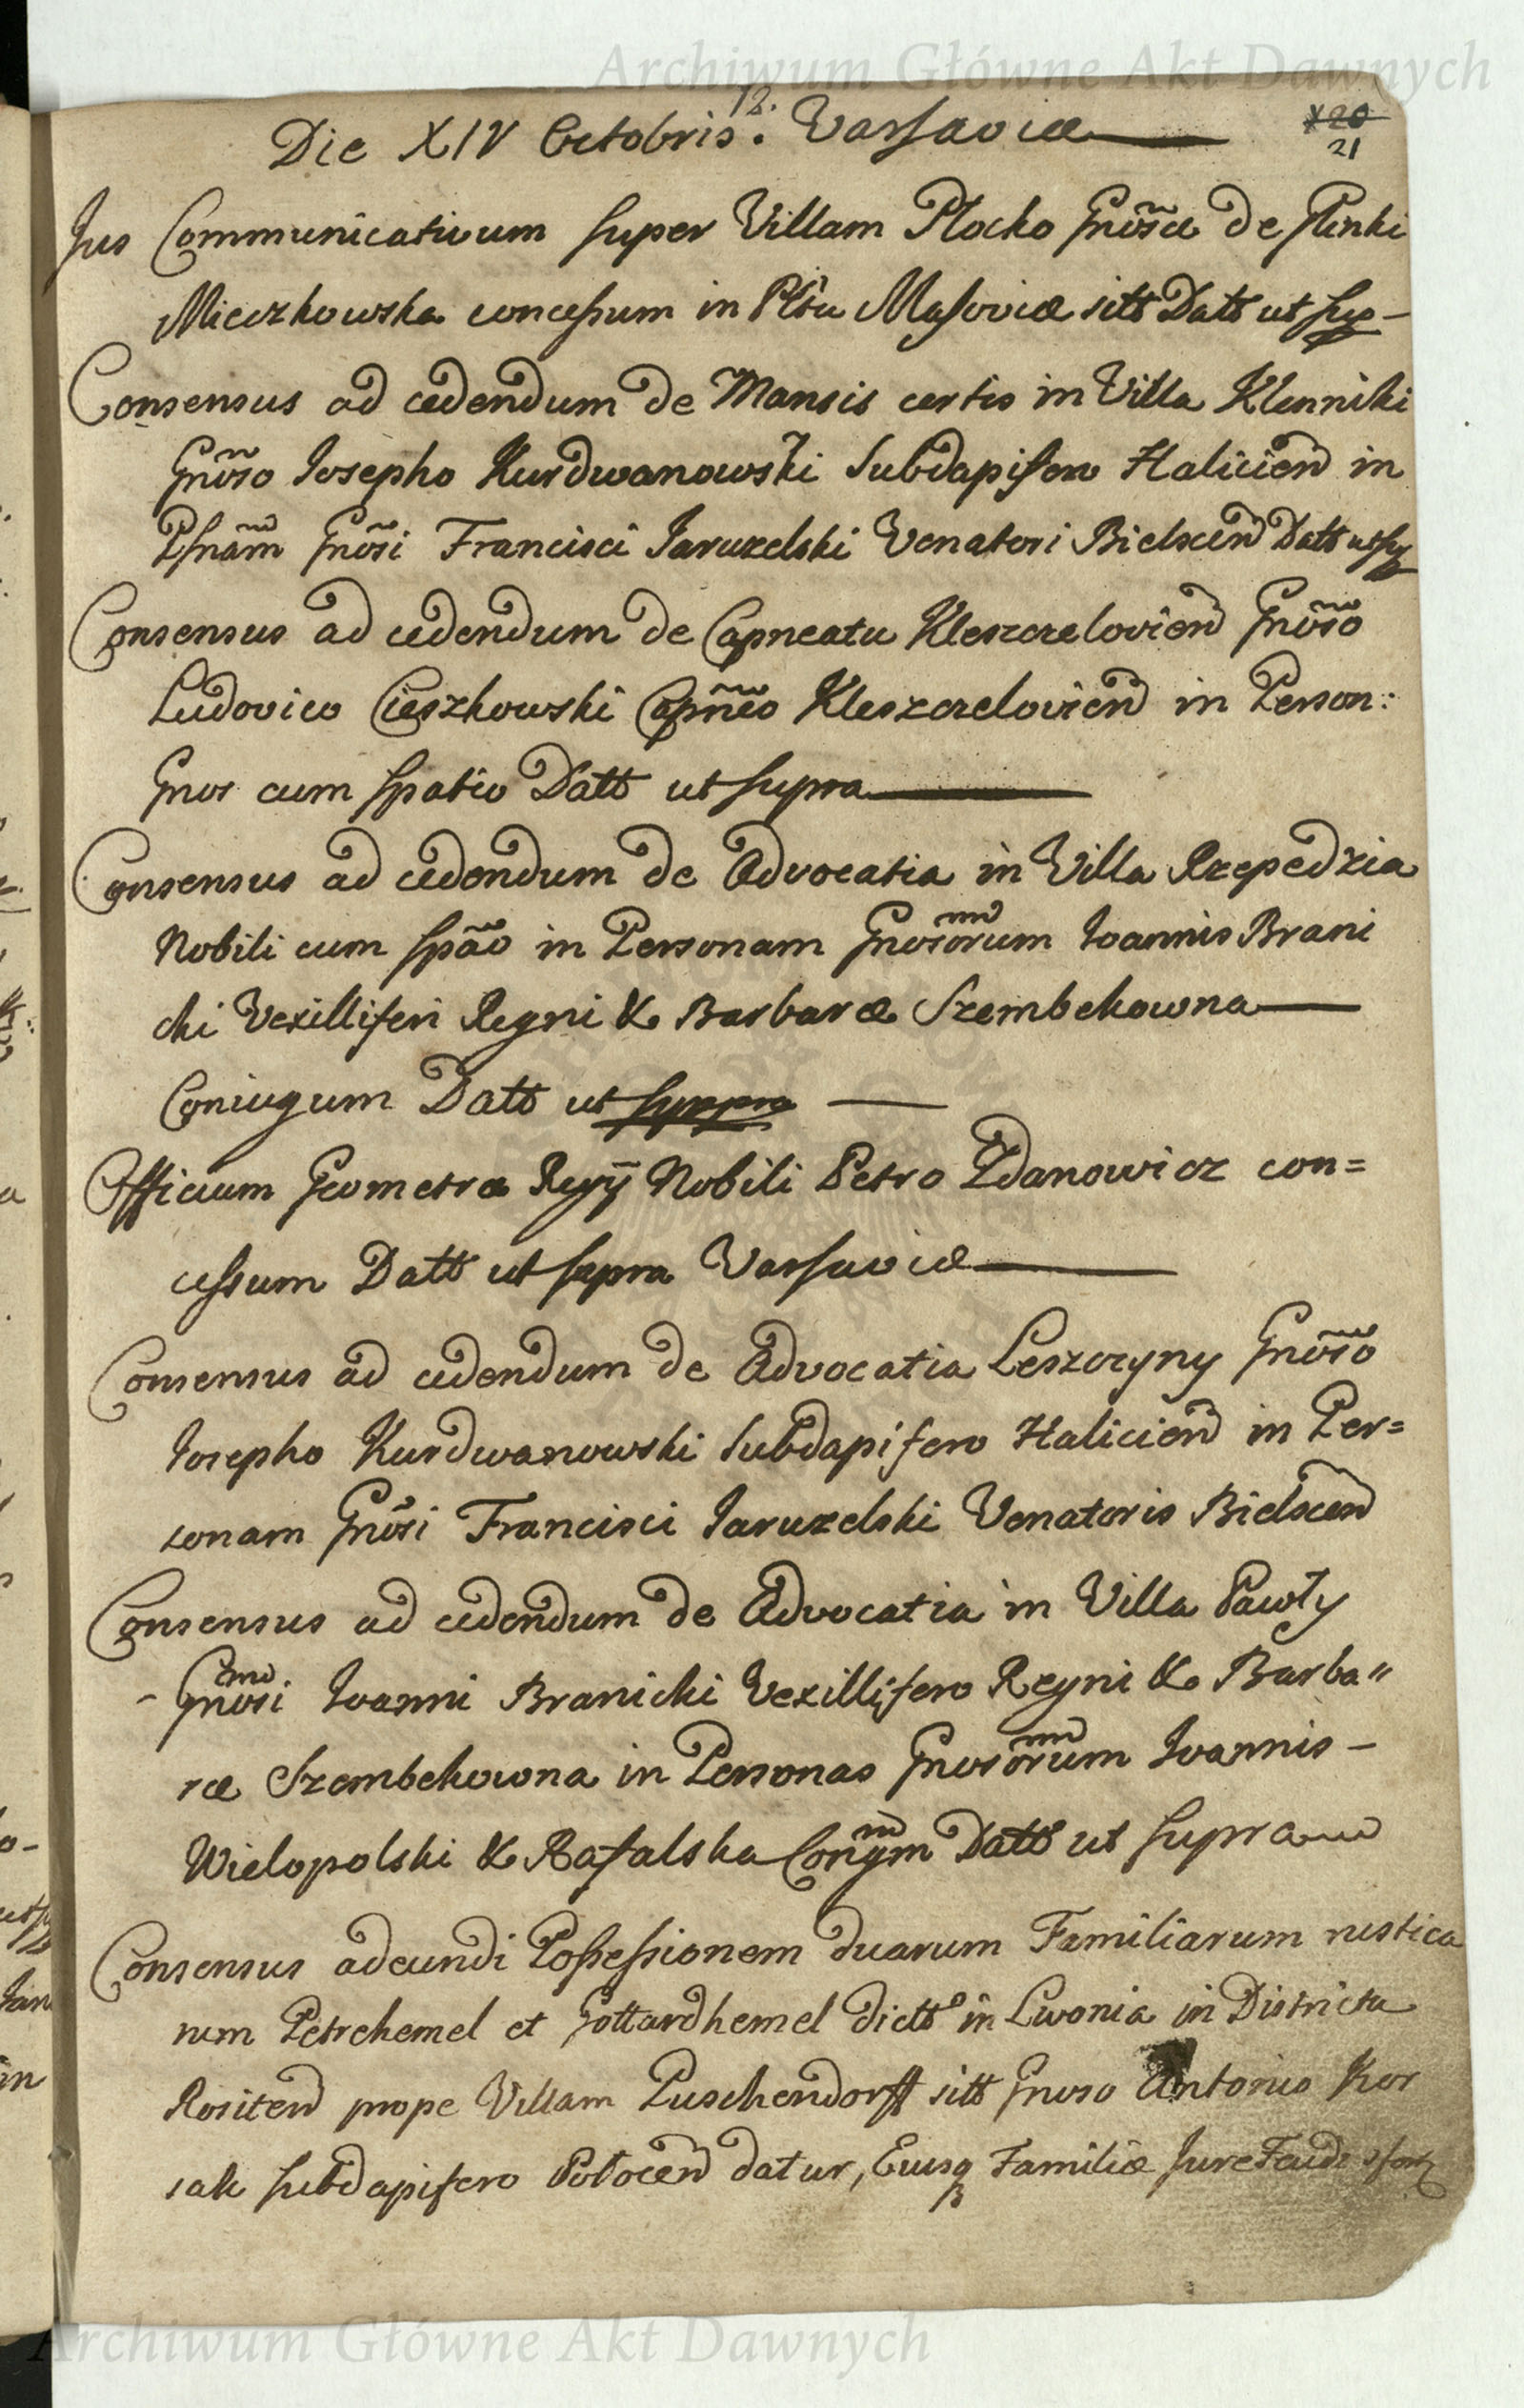 Archiwum Główne Akt Dawnych
12.
Die XIV Octobris. Varsaviæ
*20
21
Jus Communicativum super Villam Płocko Gnosæ de Glinki
Mieczkowska concessum in Pltu Masoviæ sitt Datt ut sup
Consensus ad cedendum de Mansis certis in Villa Klenniki
Gnoso Josepho Kurdwanowski Subdapifero Halicien in
Psnam Gnosi Francisci Jaruzelski Venatori Bielscen Datt ut sup
Consensus ad cedendum de Capneatu Kleszczelovien Gnoso
Ludovico Cieszkowski Capneo Kleszczelovien in Person:
Gnos cum spatio Datt ut supra
Consensus ad cedendum de Advocatia in Villa Rzepedzia
Nobili cum spao in Personam Gnosorum Joannis Brani
cki Vexilliferi Regni & Barbaræ Szembekowna
Coniugum Datt ut suppra
Officium Geometræ Regij Nobili Petro Zdanowicz con=
cessum Datt ut supra Varsaviæ
Consensus ad cedendum de Advocatia Leszczyny Gnoso
Josepho Kurdwanowski Subdapifero Halicien in Per=
sonam Gnosi Francisci Jaruzelski Venatoris Bielscen
Consensus ad cedendum de Advocatia in Villa Pawły
Gnosi Joanni Branicki Vexillifero Regni & Barba"
ræ Szembekowna in Personas Gnosorum Joannis -
Wielopolski & Rafalska Congm Datt ut supra
Consensus adeundi Possessionem duarum Familiarum rustica
rum Petrehemel et Gottardhemel dictt in Livonia in Districtu
Rositen prope Villam Puschendorff sitt Gnoso Antonio Kor
sak subdapifero Polocen datur, Eiusq Familiæ Jure Feudi
Archiwum Główne Akt Dawnych